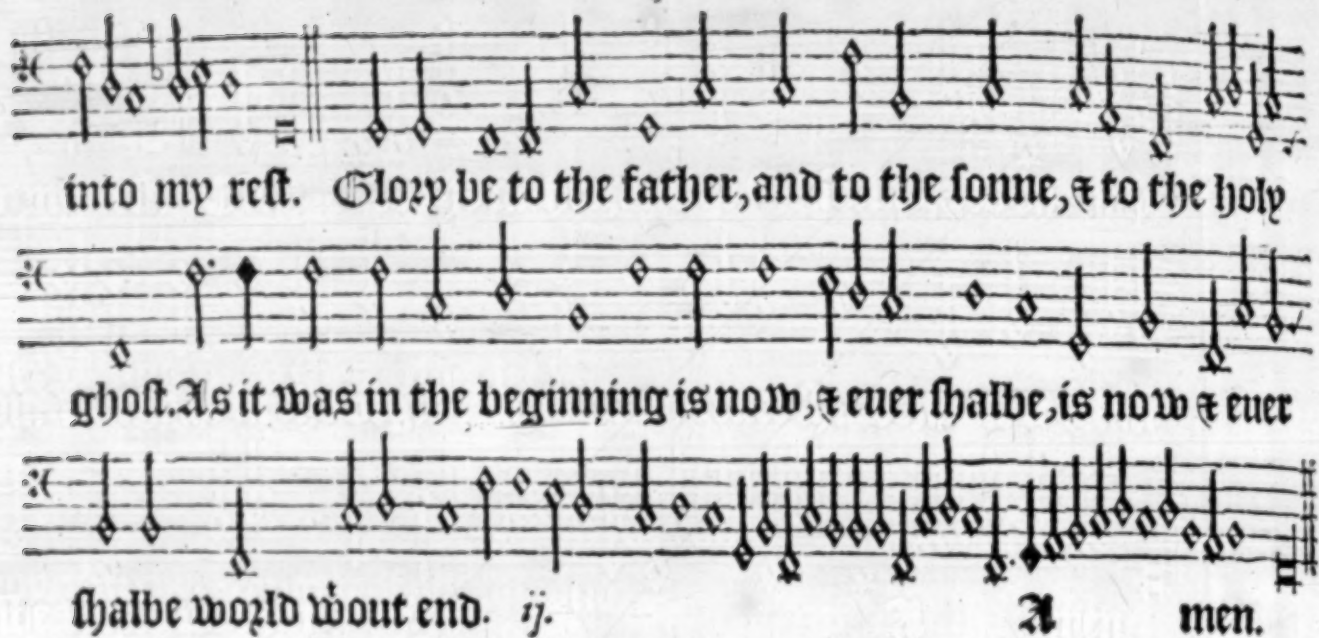 into my rest. Glory be to the father, and to the sonne, & to the holy
ghost. As it was in the beginning is now, & euer shalbe, is now & euer
shalbe world wͭout end. ij. A men.